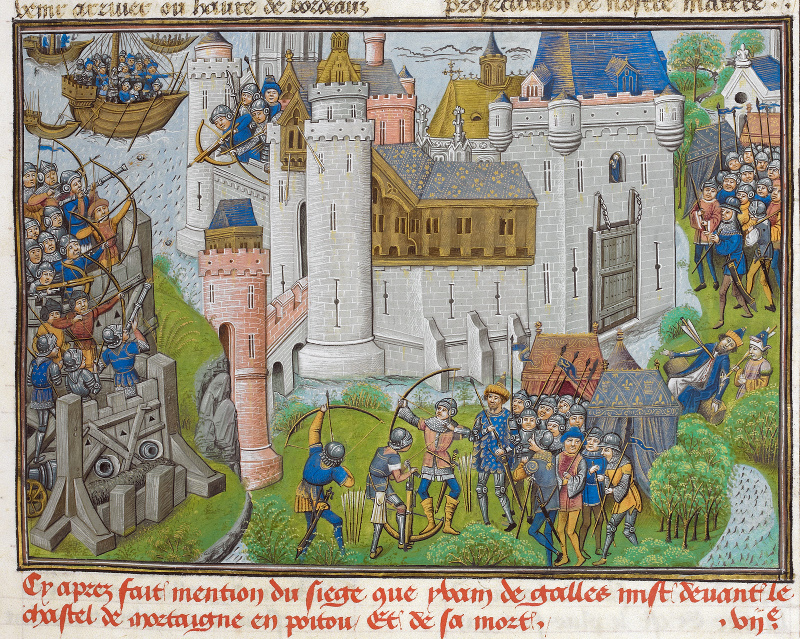 venir arriver ou havre de bordeaux
prosecution de nostre matere .
Cy aprez fait mention du siege que yvain de galles mist devant le
chastel de mortaigne en poitou Et de sa mort . . vije